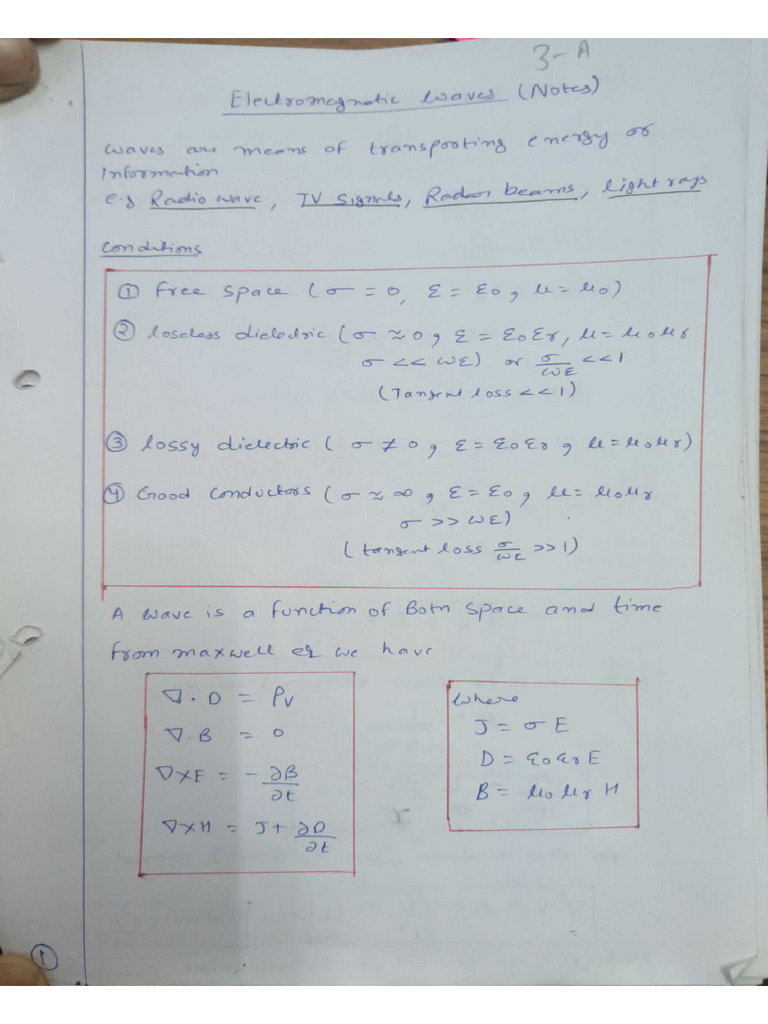 3-A
Electromagnetic waves (Notes)
waves are means of transporting energy or
Information
e.g Radio wave, TV Signals, Radar beams, light rays
Conditions
① free space (σ = 0, ε = ε0, μ = μ0)
② loseless dielectric (σ ≈ 0, ε = ε0εr, μ = μ0μr
σ << ωε) or σ/ωε <<1
(Tangent loss <<1)
③ lossy dielectric (σ ≠ 0, ε = ε0εr, μ = μ0μr)
④ Good conductors (σ ≈ ∞, ε = ε0, μ = μ0μr
σ >> ωε)
(tangent loss σ/ωε >>1)
A wave is a function of Both space and time
from maxwell eq we have
∇.D = ρv
∇.B = 0
∇×E = -∂B/∂t
∇×H = J+∂D/∂t
where
J = σE
D = ε0εrE
B = μ0μrH
①